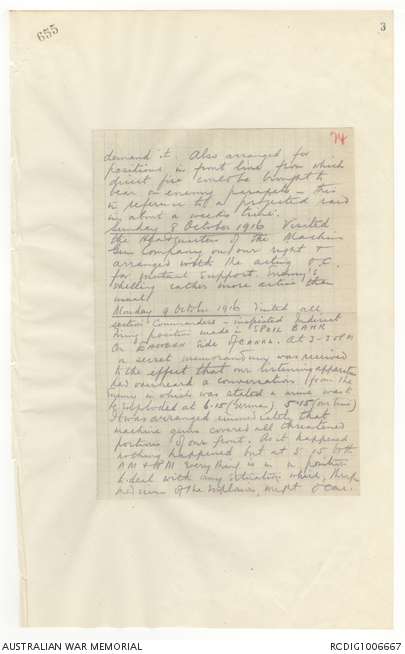 655
3
74
demand it. Also arranged for
positions in front line from which
direct fire could be brought to
bear on enemy parapets – this
in reference to a projected raid
in about a weeks time.
Sunday 8 October 1916 Visited
the Headquarters of the Machine
Gun Company on our right &
arranged with the acting O.C.
for mutual support. Enemy's
shelling rather more active than
usual
Monday 9 October 1916 Visited all
section Commanders – inspected Indirect
firing position made in SPOIL BANK
On side of CANAL. At 3-30 PM
a secret memorandum was received
to the effect that our listening apparatus
has overheard a conversation (from the
enemy in which was stated a mine was
to be exploded at 6.15 (German) 5-15 (our time)
It was arranged immediately that
machine guns covered all threatened
portions of our front. As it happened
nothing happened but at 5.15 both
AM & PM everything is in position
to deal with any situation which,
of the explosion, might occur.
AUSTRALIAN WAR MEMORIAL
RCDIG1006667